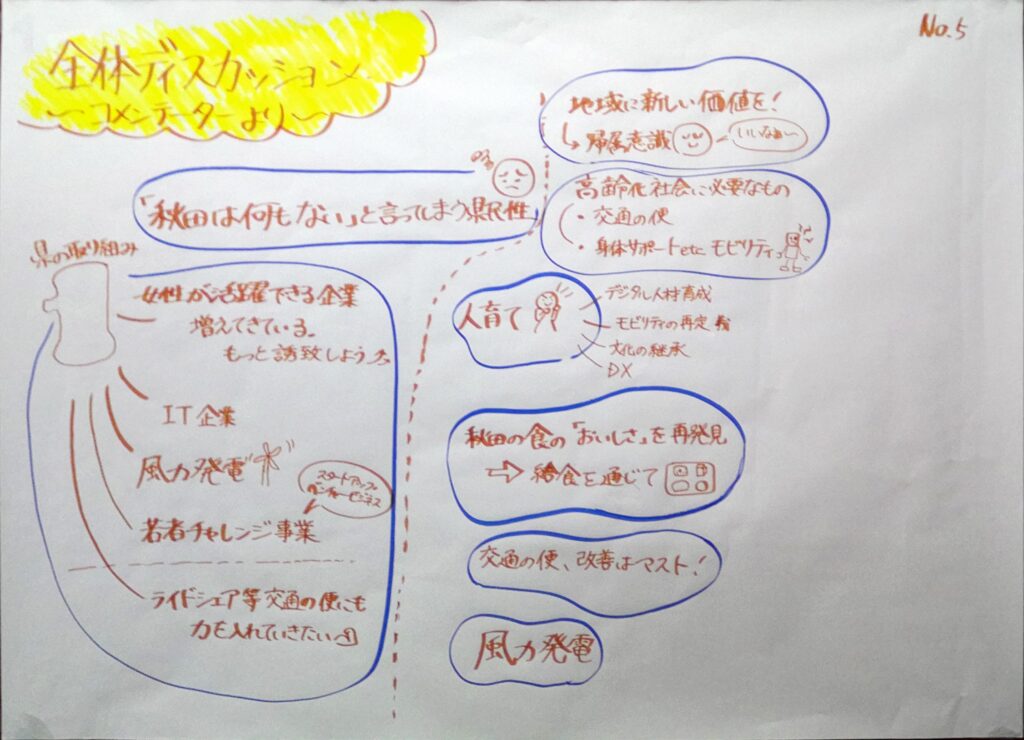 No.5
全体ディスカッション
〜コメンテーターより〜
「秋田は何もない」と言ってしまう県民性
県の取り組み
女性が活躍できる企業
増えてきている。
もっと誘致しよう
IT企業
風力発電
スタートアップ
ベンチャービジネス
若者チャレンジ事業
ライドシェア等交通の便にも
力を入れていきたい
地域に新しい価値を!
↳帰属意識
いいなぁ〜
高齢化社会に必要なもの
・交通の便
・身体サポートetcモビリティ
人育て
デジタル人材育成
モビリティの再定義
文化の継承
DX
秋田の食の「おいしさ」を再発見
⇨給食を通じて
交通の便、改善はマスト!
風力発電